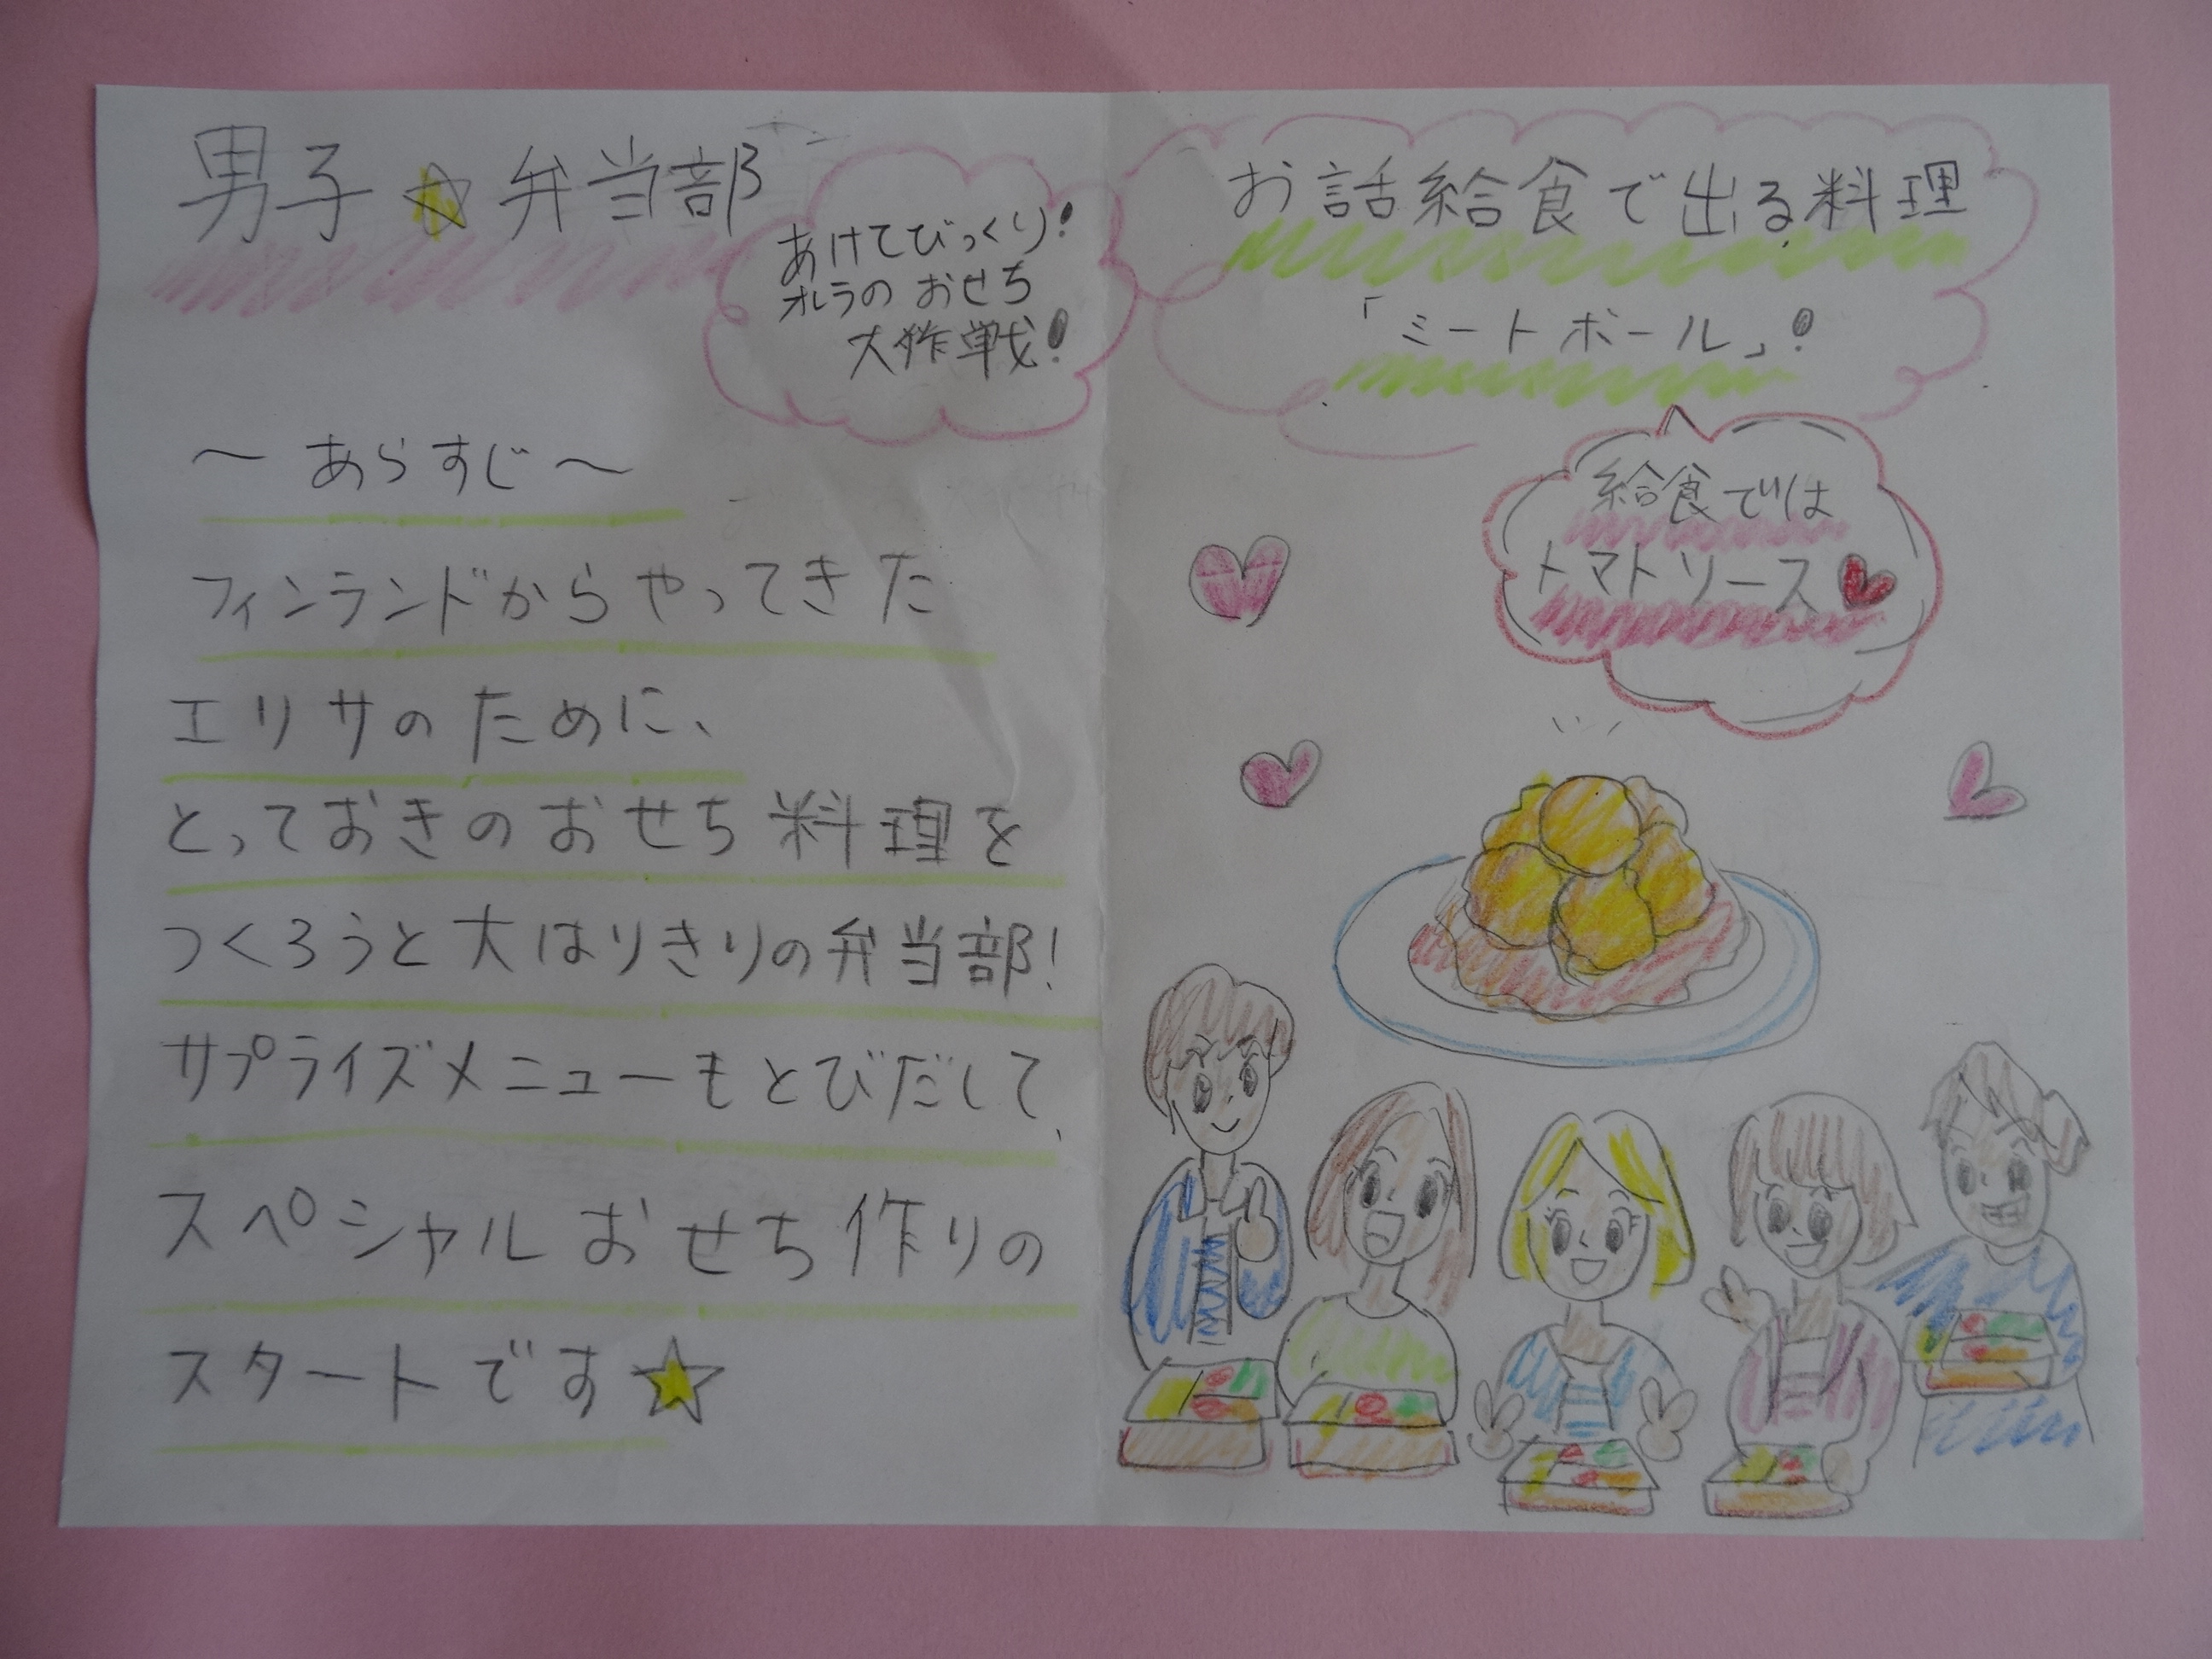 男子☆弁当部
あけてびっくり!
オレラの おせち
大作戦!
〜あらすじ〜
フィンランドからやってきた
エリサのために、
とっておきのおせち料理を
つくろうと大はりきりの弁当部!
サプライズメニューもとびだして、
スペシャルおせち作りの
スタートです☆
お話給食で出る料理
「ミートボール」!
給食では
トマトソース♥